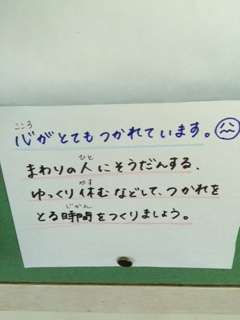 こころ
心がとてもつかれています。
ひと
まわりの人にそうだんする、
やす
ゆっくり休むなどして、つかれを
じかん
とる時間をつくりましょう。